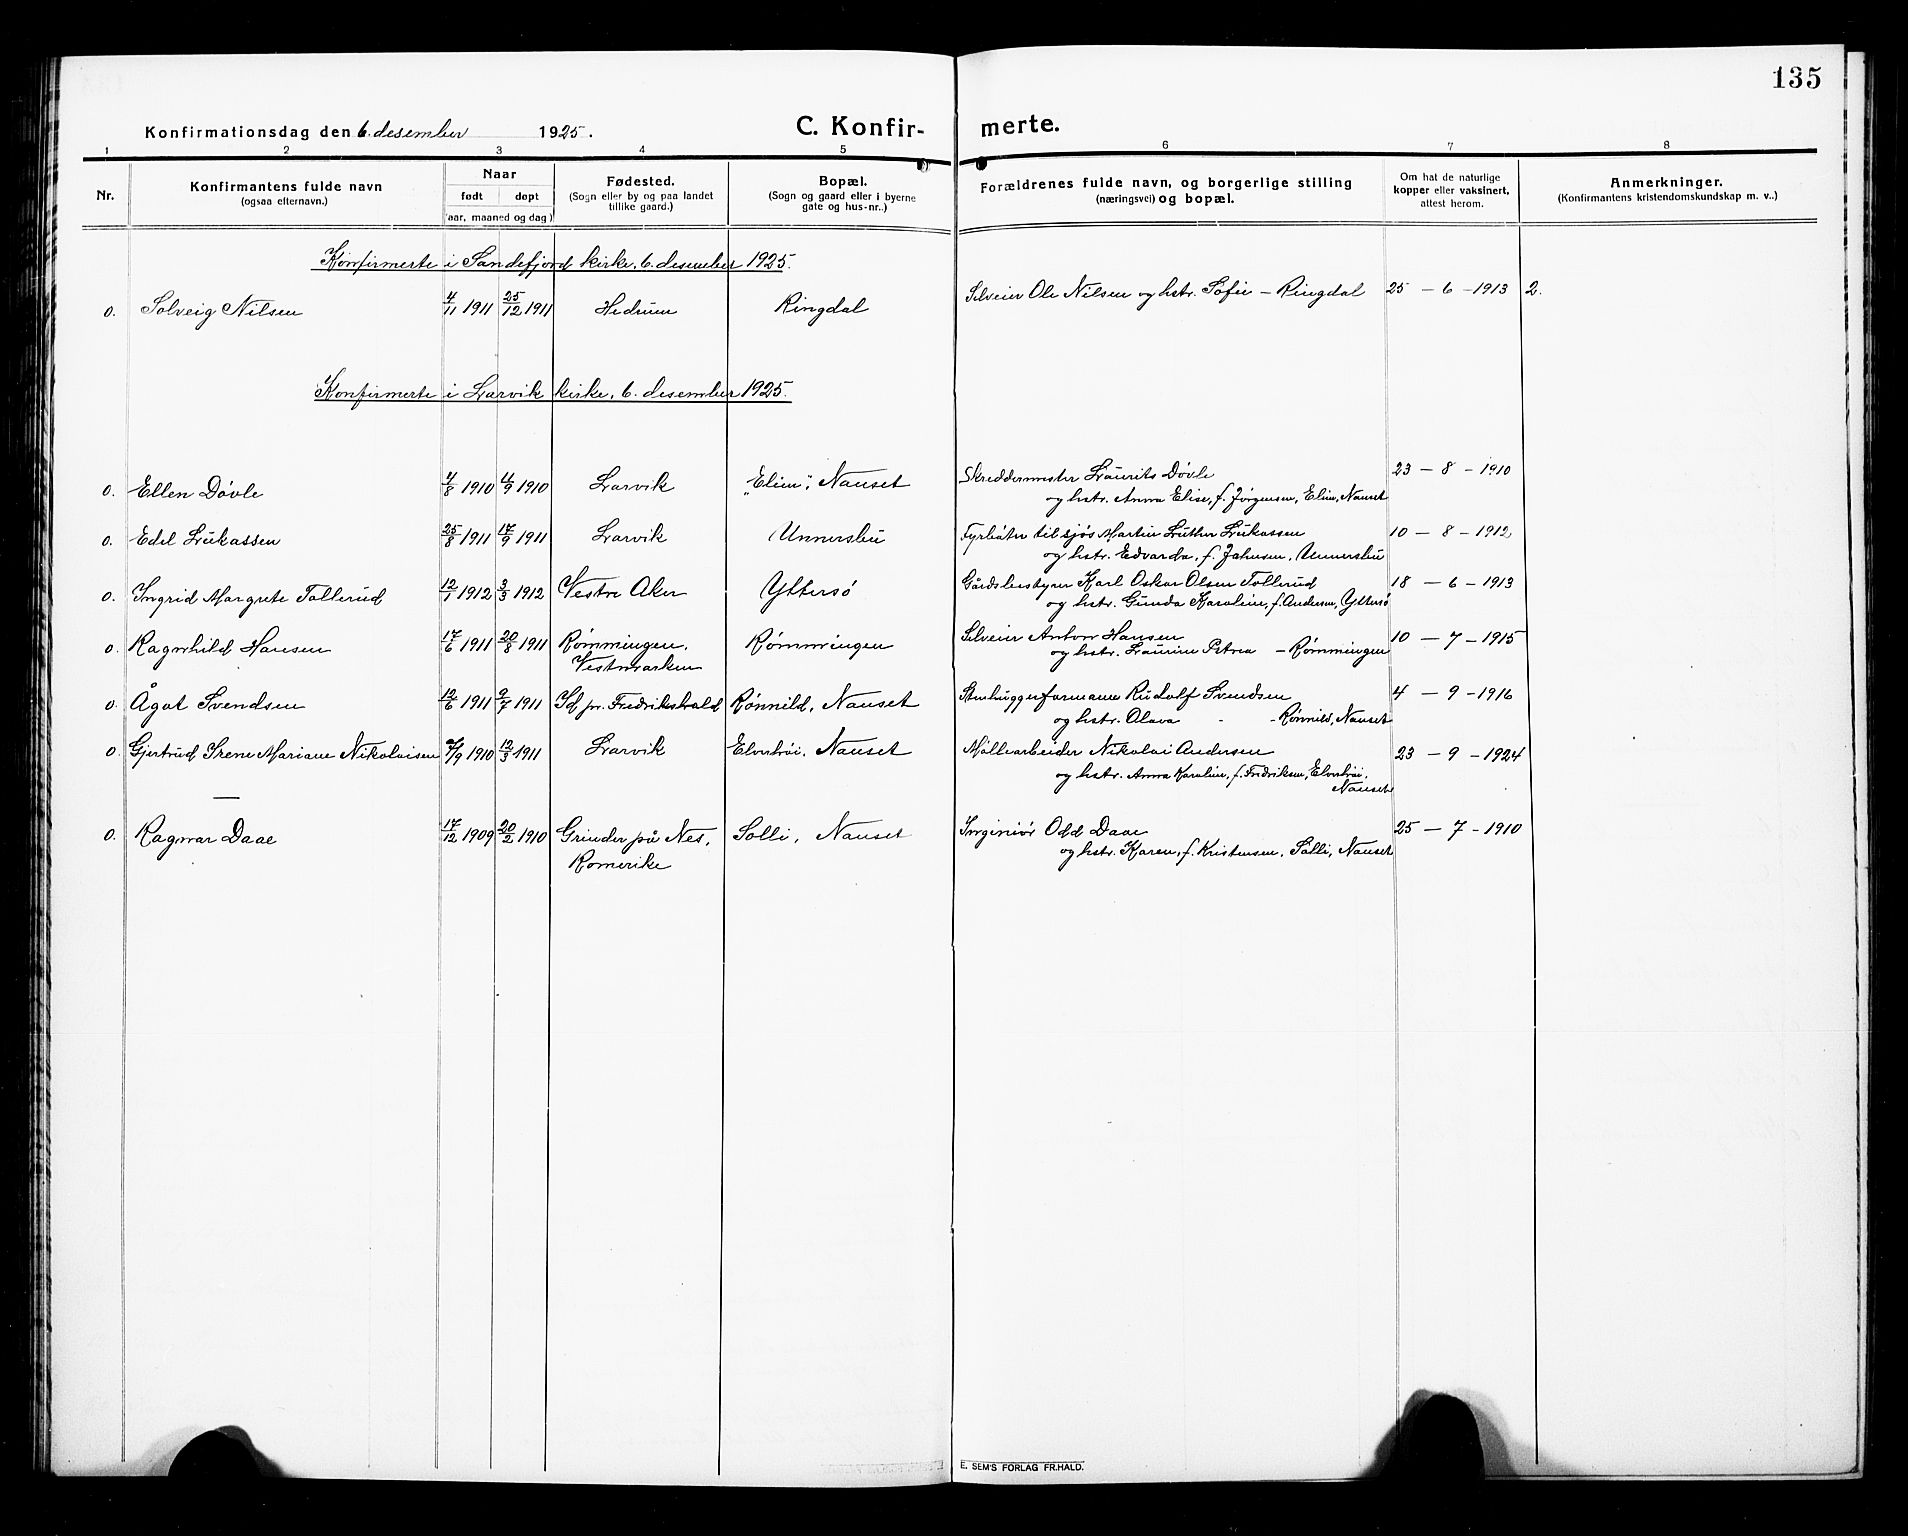 135
Konfirmationsdag den 6. desember 1925.
C. Konfir- merte.
1 2 3 4 5 6 7 8
Nr.
Konfirmantens fulde navn
(ogsaa efternavn.)
Naar
født døpt
(aar, maaned og dag)
Fødested.
(Sogn eller by og paa landet
tillike gaard.)
Bopæl.
(Sogn og gaard eller i byerne
gate og hus-nr..)
Forældrenes fulde navn, og borgerlige stilling
(næringsvei) og bopæl.
Om hat de naturlige
kopper eller vaksinert,
attest herom.
Anmerkninger.
(Konfirmantens kristendomskundskap m. v..)
Konfirmerte i Sandefjord kirke, 6. desember 1925.
0. Solveig Nilsen 4/11 1911 25/12 1911 Hedrum Ringdal Selveier Ole Nilsen og hstr. Sofie — Ringdal 25 — 6 — 1913 2.
Konfirmerte i Larvik kirke, 6. desember 1925.
0. Ellen Døvle 4/8 1910 4/9 1910 Larvik „Elim", Nanset Skreddermester Laurits Døvle 23 — 8 — 1910
og hstr. Anna Elise, f. Jørgensen, Elim, Nanset
0. Edel Lukassen 25/8 1911 17/9 1911 Larvik Unnersbu Fyrbøter til sjøs Martin Luther Lukassen 10 — 8 — 1912
og hstr. Edvarda, f. Jahnsen, Unnersbu
0. Ingrid Margrete Tollerud 12/1 1912 3/3 1912 Vestre Aker Yttersø Gårdsbestyrer Karl Oskar Olsen Tollerud 18 — 6 — 1913
og hstr. Gunda Karoline, f. Andersen, Yttersø
0. Ragnhild Hansen 17/6 1911 20/8 1911 Rømmingen, Rømmingen Selveier Anton Hansen 10 — 7 — 1915
Vestmarken og hstr. Laurine Petrea — Rømmingen
0. Ågot Svendsen 12/6 1911 9/7 1911 Id pr. Fredrikshald Rønnild, Nanset Stenhuggerformann Rudolf Svendsen 4 — 9 — 1916
og hstr. Olava - - Rønnild, Nanset
0. Gjertrud Irene Mariane Nikolaisen /9 1910 12/3 1911 Larvik Elvebrøi, Nanset Møllearbeider Nikolai Andersen 23 — 9 — 1924
og hstr. Anna Karoline, f. Fredriksen,
Nanset
—
0. Ragnar Daae 17/12 1909 20/2 1910 Grinder på Nes, Solli, Nanset Ingeniør Odd Daae 25 — 7 — 1910
Romerike og hstr. Karen, f. Kristensen, Solli, Nanset
E. SEM'S FORLAG FR.HALD.